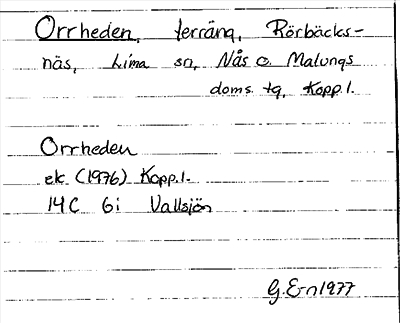 Orrheden, terräng, Rörbäcks-
näs, Lima sn, Nås o. Malungs
doms. tg, Kopp.l.
Orrheden
ek (1976) Kopp.l.
14C 6i Vallsjön
G.E-n 1977